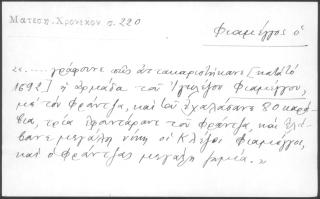 Ματεση. Χρονικον σ. 220
Φιαμέγγος ὁ
«..... γράφουνε πῶς ἀντακαριστήκανε [κατὰ τὸ
1692] ἡ ἁρμάδα τοῦ Ἰγγλέζου Φιαμέγγου,
μὲ τὸν Φράντζα, καὶ τοῦ ἐχαλάσανε 80 καρά-
βια, τρία ἐφουντάρανε τοῦ Φράντζα, καὶ ἐλά-
βανε μεγάλη νίκη οἱ Ἰγκλέζοι Φιαμέγγοι,
καὶ ὁ Φράντζας μεγάλη ζημία.»